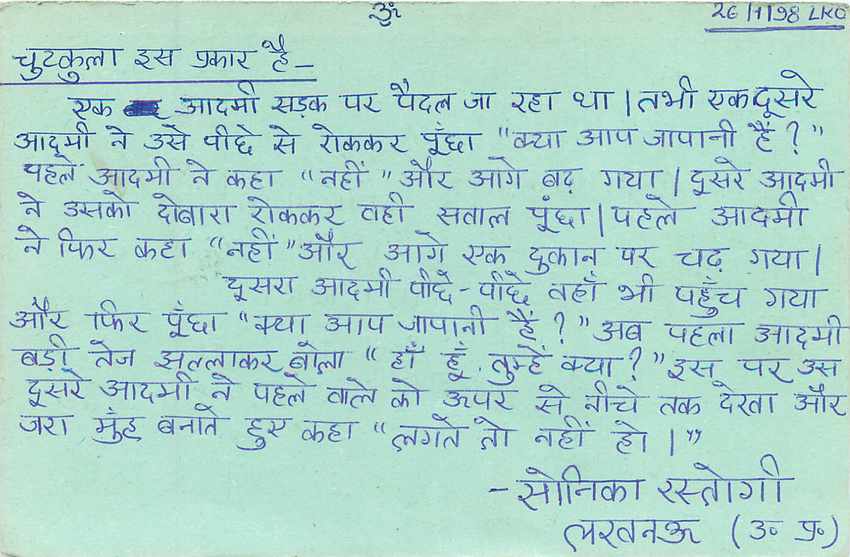 ॐ
26/1/98 LKO
चुटकुला इस प्रकार है_
एक आदमी सड़क पर पैदल जा रहा था। तभी एक दूसरे
आदमी ने उसे पीछे से रोककर पूंछा "क्या आप जापानी हैं?"
पहले आदमी ने कहा "नहीं" और आगे बढ़ गया। दूसरे आदमी
ने उसको दोबारा रोककर वही सवाल पूंछा। पहले आदमी
ने फिर कहा "नहीं" और आगे एक दुकान पर चढ़ गया।
दूसरा आदमी पीछे-पीछे वहाँ भी पहुँच गया
और फिर पूंछा "क्या आप जापानी हैं?" अब पहला आदमी
बड़ी तेज झल्लाकर बोला "हाँ हूँ, तुम्हें क्या?" इस पर उस
दूसरे आदमी ने पहले वाले को ऊपर से नीचे तक देखा और
जरा मुंह बनाते हुए कहा "लगते तो नहीं हो।"
- सोनिका रस्तोगी
लखनऊ (उ० प्र०)